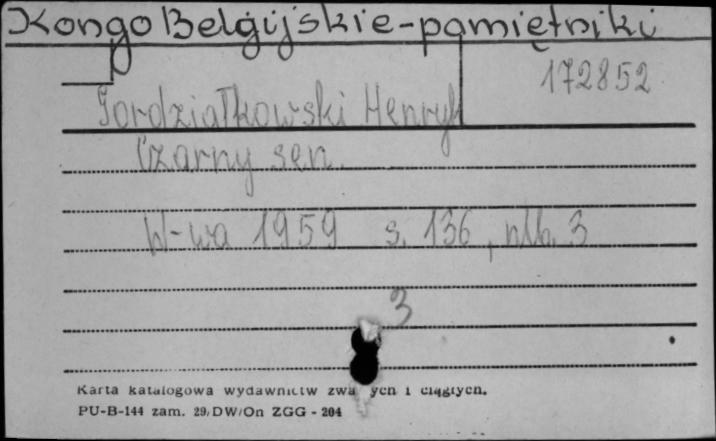 Kongo Belgijskie - pamiętniki
172852
Gordziałkowski Henryk
Czarny sen.
W-wa 1959 s. 136, nlb. 3
3
Karta katalogowa wydawnictw zwa ych i ciągłych.
PU-B-144 zam. 29/DW/On ZGG - 204